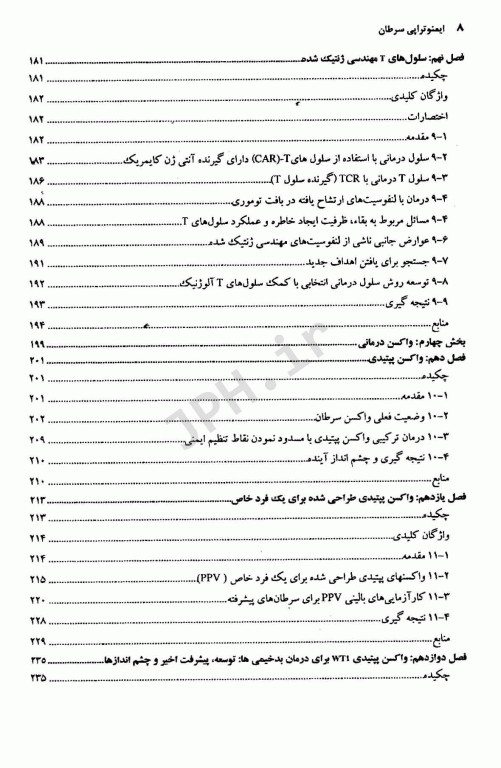 ۸ ایمنوتراپی سرطان
فصل نهم: سلول‌های T مهندسی ژنتیک شده ۱۸۱
چکیده ۱۸۱
واژگان کلیدی ۱۸۲
اختصارات ۱۸۲
۹-۱ مقدمه ۱۸۲
۹-۲ سلول درمانی با استفاده از سلول های CAR)-T) دارای گیرنده آنتی ژن کایمریک ۱۸۳
۹-۳ سلول T درمانی با TCR (گیرنده سلول T) ۱۸۶
۹-۴ درمان با لنفوسیت‌های ارتشاح یافته در بافت توموری ۱۸۸
۹-۴ مسائل مربوط به بقاء، ظرفیت ایجاد خاطره و عملکرد سلول‌های T ۱۸۸
۹-۶ عوارض جانبی ناشی از لنفوسیت‌های مهندسی ژنتیک شده ۱۸۹
۹-۷ جستجو برای یافتن اهداف جدید ۱۹۱
۹-۸ توسعه روش سلول درمانی انتخابی با کمک سلول‌های T آلوژنیک ۱۹۲
۹-۹ نتیجه گیری ۱۹۳
منابع ۱۹۴
بخش چهارم: واکسن درمانی ۱۹۹
فصل دهم: واکسن پپتیدی ۲۰۱
چکیده ۲۰۱
۱۰-۱ مقدمه ۲۰۱
۱۰-۲ وضعیت فعلی واکسن سرطان ۲۰۲
۱۰-۳ درمان ترکیبی واکسن پپتیدی با مسدود نمودن نقاط تنظیم ایمنی ۲۰۹
۱۰-۴ نتیجه گیری و چشم انداز آینده ۲۱۰
منابع ۲۱۰
فصل یازدهم: واکسن پپتیدی طراحی شده برای یک فرد خاص ۲۱۳
چکیده ۲۱۳
واژگان کلیدی ۲۱۴
۱۱-۱ مقدمه ۲۱۴
۱۱-۲ واکسنهای پپتیدی طراحی شده برای یک فرد خاص ( PPV) ۲۱۵
۱۱-۳ کارآزمایی‌های بالینی PPV برای سرطان‌های پیشرفته ۲۲۰
۱۱-۴ نتیجه گیری ۲۲۸
منابع ۲۲۹
فصل دوازدهم: واکسن پپتیدی WT1 برای درمان بدخیمی ها: توسعه، پیشرفت اخیر و چشم اندازها ۲۳۵
چکیده ۲۳۵
JPH.ir